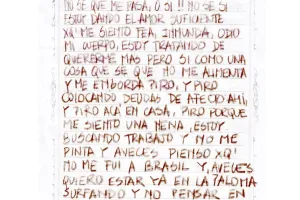 NO SE QUE ME PASA, O SI !! NO SE SI
ESTOY DANDO EL AMOR SUFICIENTE
XQ' ME SIENTO FEA, INMUNDA, ODIO
MI CUERPO, ESTOY TRATANDO DE
QUERERME MAS PERO SI COMO UNA
COSA QUE SE QUE NO ME ALIMENTA
Y ME ENGORDA PIRO, Y PIRO
COLOCANDO DEUDAS DE AFECTO AHI,
Y PIRO ACA EN CASA, PIRO PORQUE
ME SIENTO UNA NENA, ESTOY
BUSCANDO TRABAJO Y NO ME
PINTA Y AVECES PIENSO XQ'
NO ME FUI A BRASIL Y, AVECES
QUIERO ESTAR YA EN LA PALOMA
SURFANDO Y NO PENSAR EN